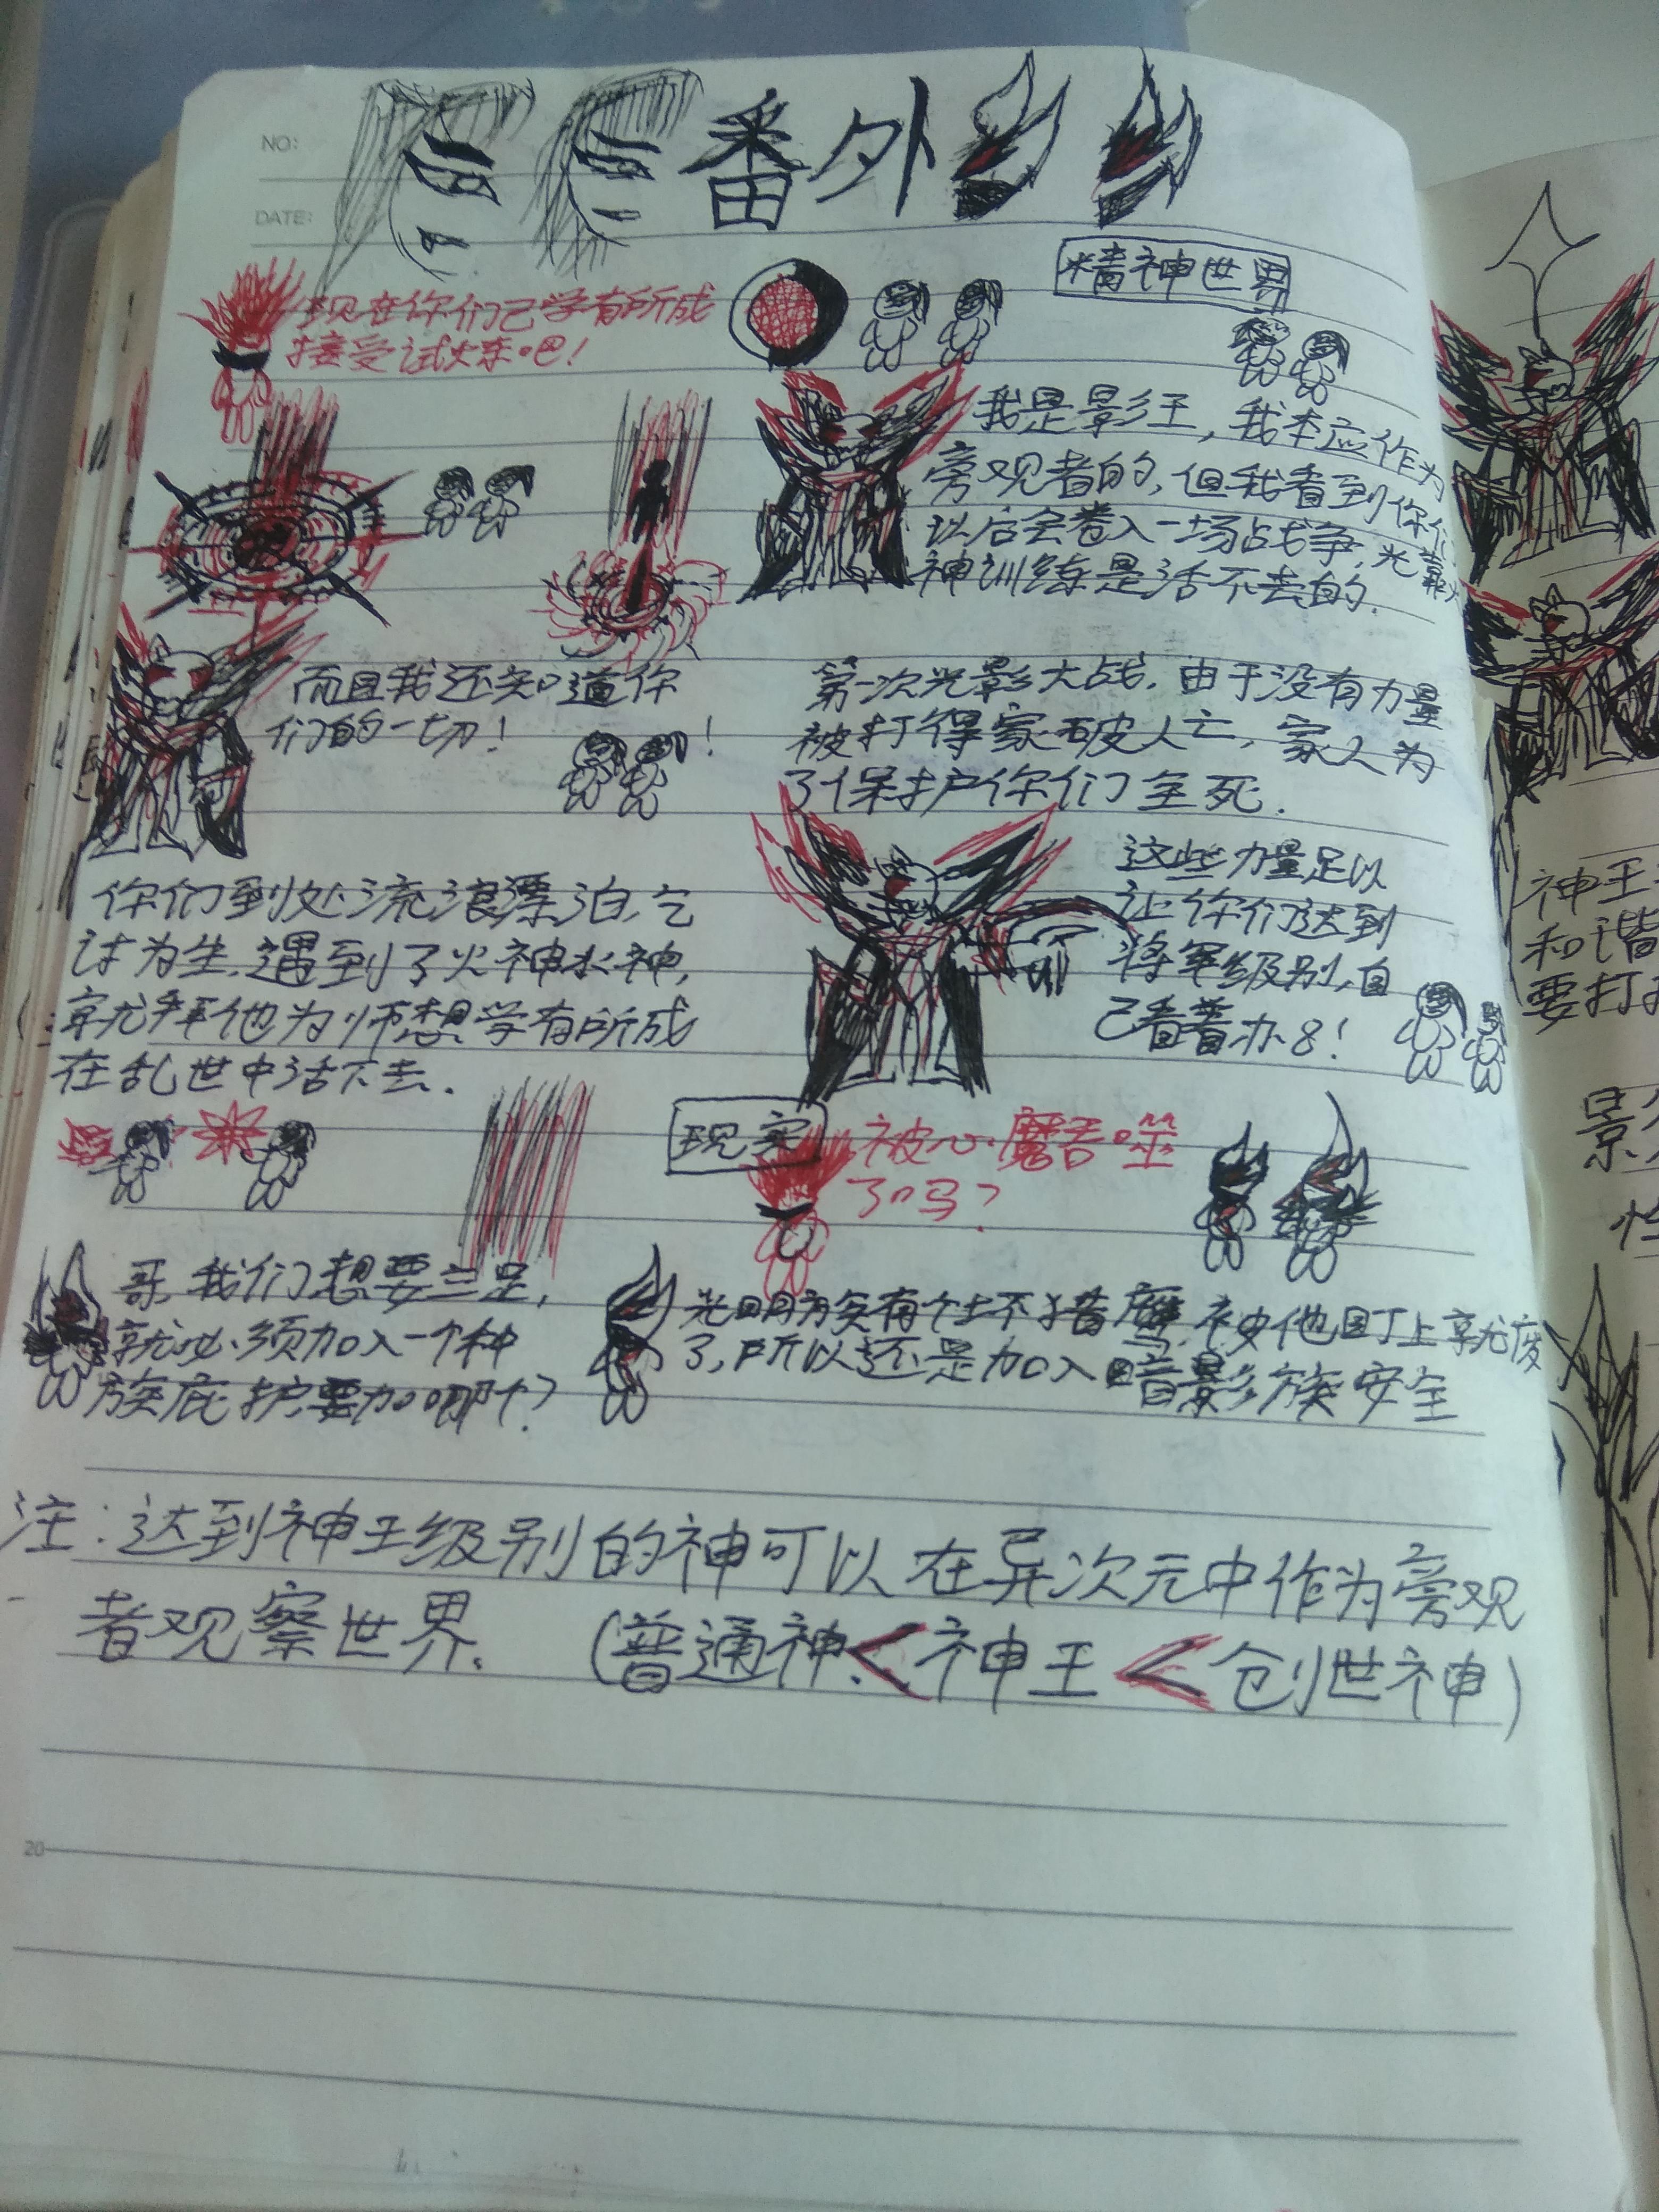 NO:
番外
DATE:
精神世界
现在你们已学有所成
接受试炼吧!
我是影王,我本应作为
旁观者的,但我看到你们
以后会卷入一场战争,光靠火
神训练是活不去的.
而且我还知道你
们的一切!
!
第一次光影大战,由于没有力量
被打得家破人亡,家人为
了保护你们全死.
你们到处流浪漂泊,乞
讨为生,遇到了火神水神,
就拜他为师想学有所成
在乱世中活下去.
这些力量足以
让你们达到
将军级别,自
己看着办8!
现实
被心魔吞噬
了吗?
哥,我们想要立足,
就必须加入一个种
族庇护要加哪个?
光明族有个
被他盯上就废
了,所以还是加入暗影族安全
注:达到神王级别的神可以在异次元中作为旁观
者观察世界。 (普通神<神王<创世神)
20
神王
和谐
要打